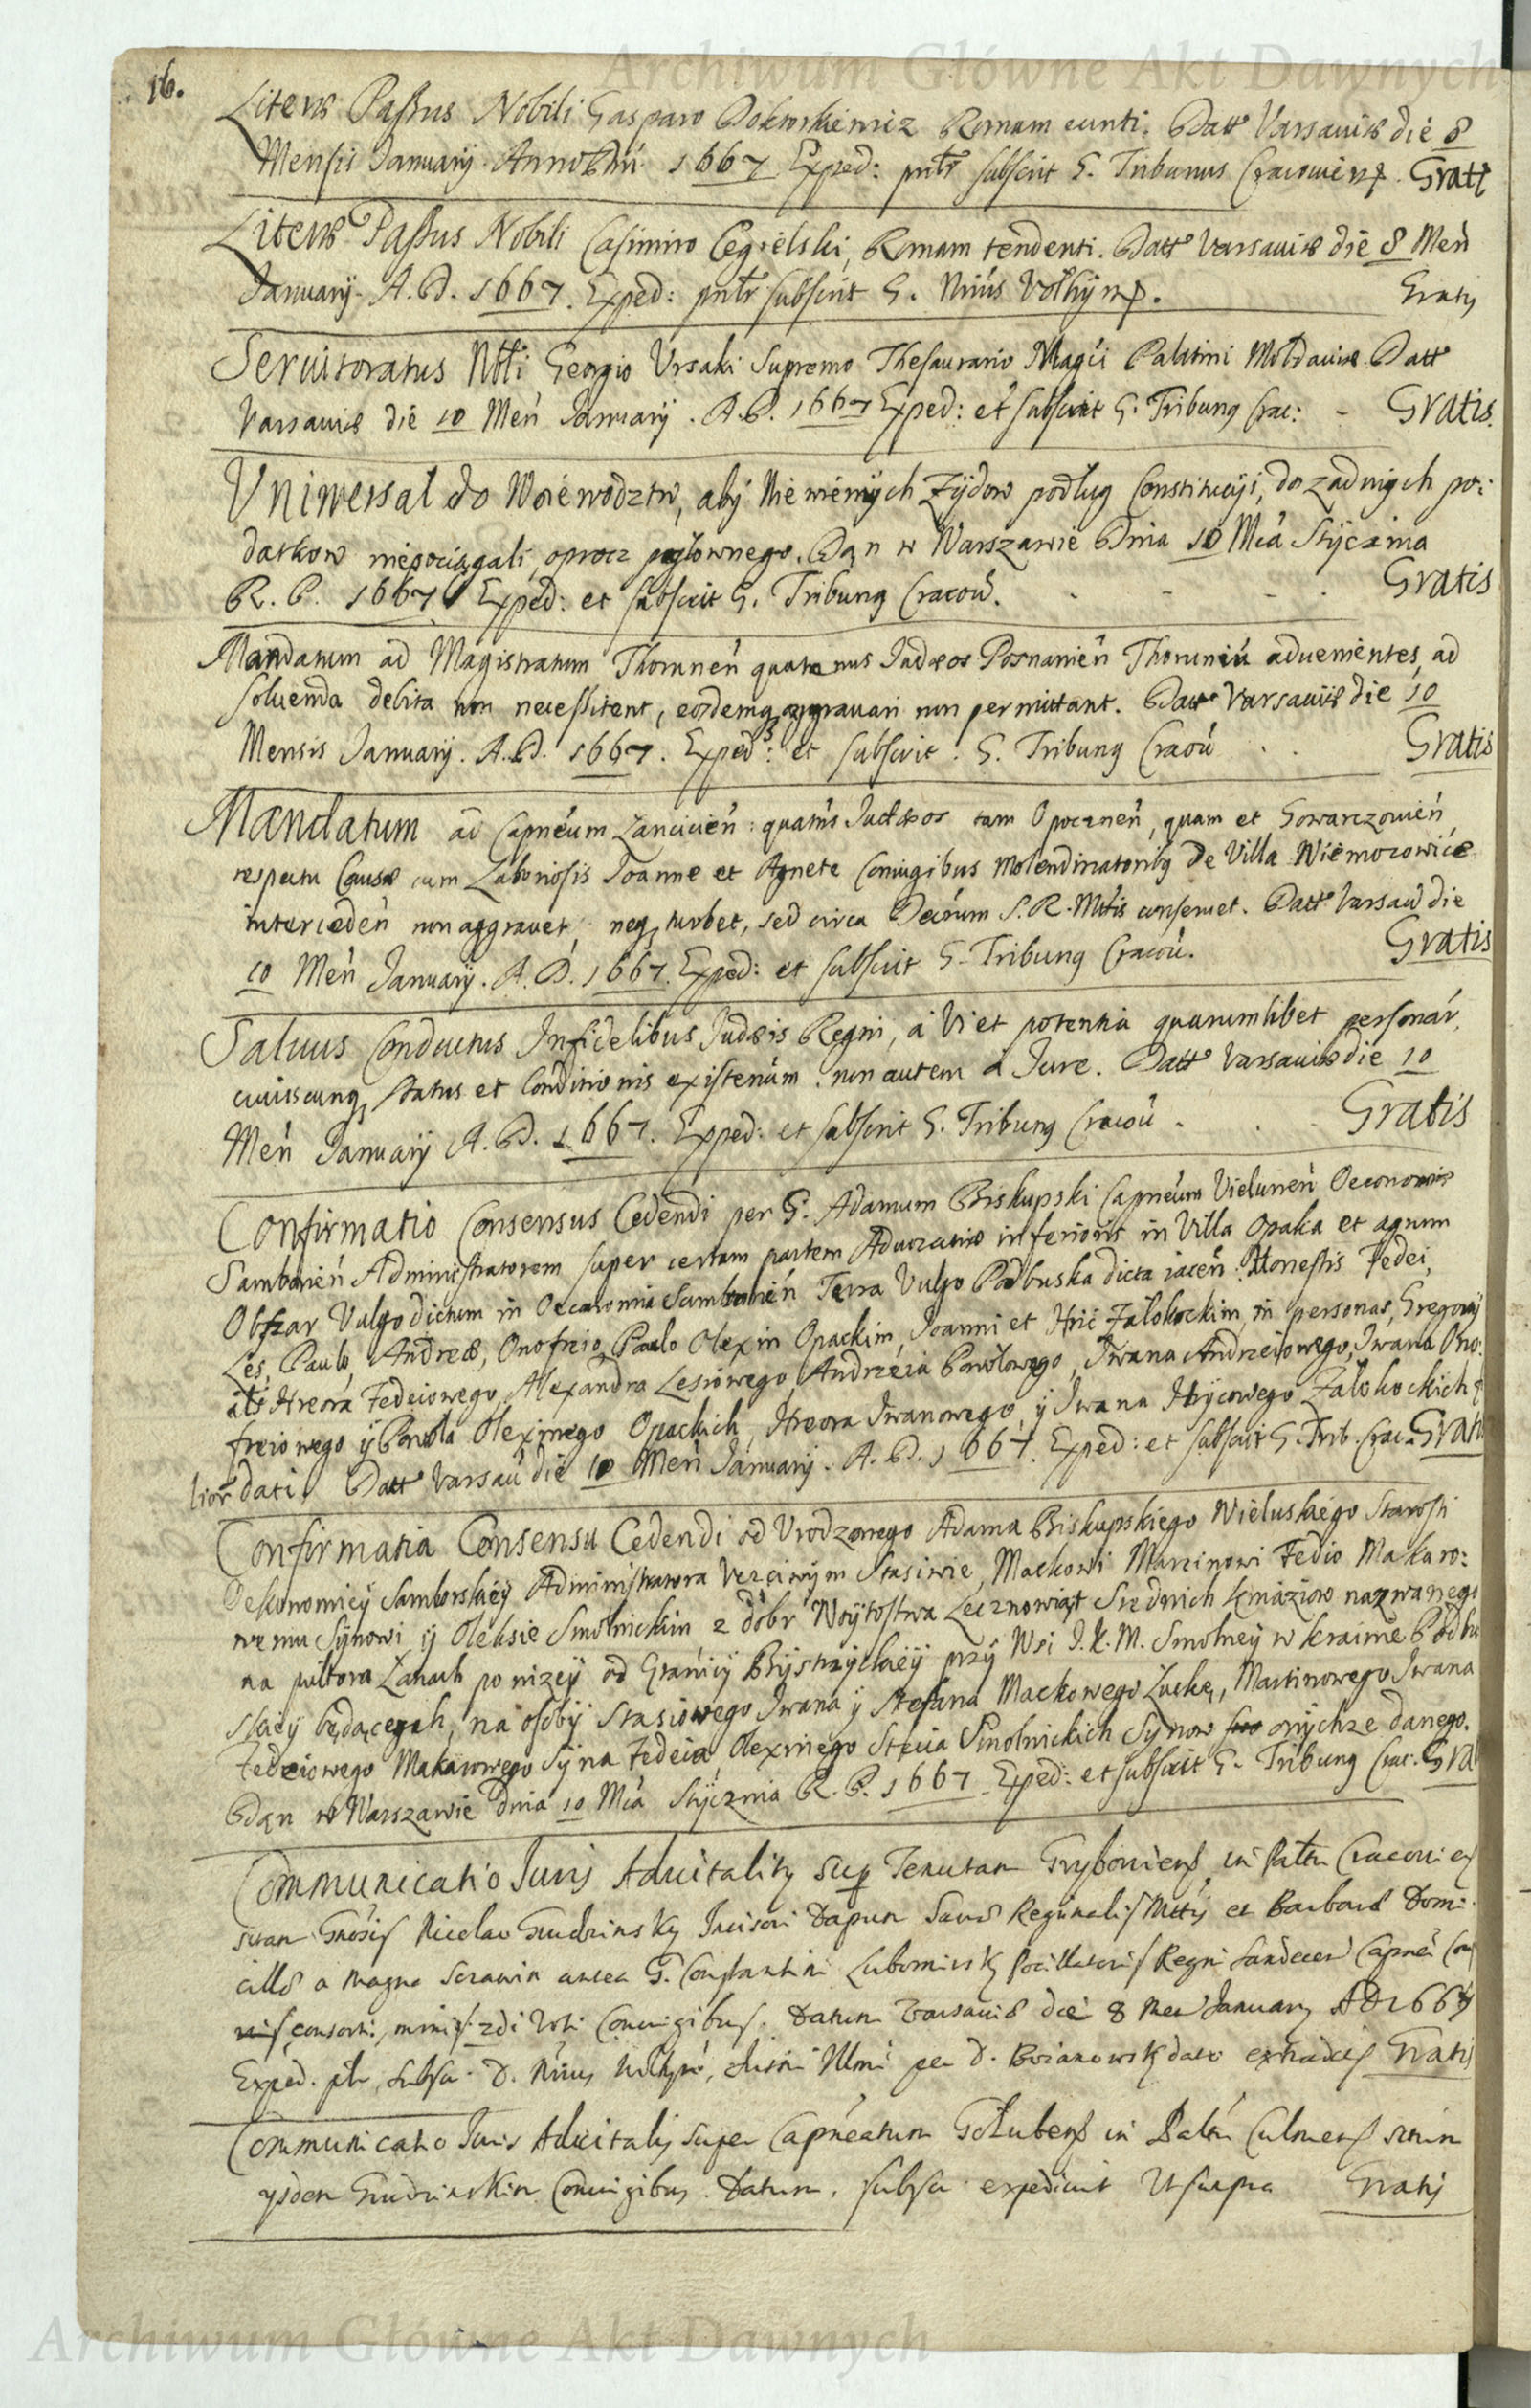 Archiwum Główne Akt Dawnych
16.
Literæ Passus Nobili Gasparo Romam eunti. Datt Varsaviæ die 8
Mensis January Anno Dni 1667 Exped: pntr subscrit G. Tribunus Cracoviens. Gratis
Literæ Passus Nobili Casimiro Cegielski, Romam tendenti. Datt Varsaviæ die 8 Men
January. A. D. 1667. Exped: pntr subscrit G. Nrius Volhyns. Gratis
Servitoratus Nbli Georgio Ursaki Supremo Thesaurario Magci Palatini Moldaviæ Datt
Varsaviæ die 10 Men January. A. D. 1667 Exped: et subscrit G. Tribunq Crac: - Gratis.
Vniwersal do Woiewodztw, aby Niewiernych Zydow podlug Constitucyi, do zadnych po:
datkow niepociągali, oprocz poglownego. Dąn w Warszawie Dnia 10 Mca Stycznia
R. P. 1667 Exped: et subscrit G. Tribunq Cracov. Gratis
Mandatum ad Magistratum Thorunen quatenus Judæos Posnanien Thoruniu advenientes, ad
solvenda debita non necessitent, eosdemq aggravari non permittant. Datt Varsaviæ die 10
Mensis January. A. D. 1667. Exped: et subscrit. G. Tribunq Cracov Gratis
Mandatum ad Capneum Lancicien: quatns Judæos tam Opocznen, quam et Gowarczovien,
respectu Causæ cum Laboriosis Joanne et Agnete Coniugibus Molendinatoribq de Villa Niemorowice
interceden non aggravet, neq turbet, sed circa Decrum S. R. Mttis conservet. Datt Varsav die
10 Men January. A. D. 1667. Exped: et subscrit G. Tribunq Cracov. Gratis
Salvus Conductus Infidelibus Judæis Regni, a vi et potentia quarumlibet personar,
cuiuscunq status et Conditionis existenum. non autem a Jure. Datt Varsaviæ die 10
Men January A. D. 1667. Exped: et subscrit G. Tribunq Cracov. Gratis
Confirmatio Consensus Cedendi per G. Adamum Biskupski Capneum Vielunen Oeconomiæ
Samborien Administratorem super certam partem Advocatiæ inferioris in Villa Opaka et agrum
Obszar Vulgo dictum in Oeconomia Samborien Terra Vulgo Podbuska dicta iacen. Honestis Fedei,
Les, Paulo, Andreæ, Onofreio, Paulo Olexin Opackim, Joanni et Hric Zalokockim, in personas, Gregorij
als Hreora Fedeiowego, Alexandra Lesiowego, Andrzeia Pawlowego, Iwana Andrzeiowego, Iwana Ono:
freiowego y Pawla Olexinego Opackich, Hreora Iwanowego, y Iwana Hrycowego Zalokockich
lior dati. Datt Varsav die 10 Men January. A. D. 1667. Exped: et subscrit G. Trib. Crac. Grati
Confirmatia Consensu Cedendi od Urodzonego Adama Biskupskiego Wieluskiego Starosti
Oekonomiey Samborskiey Administratora Uczciwym Stasiwie, Mackowi Marcinowi Fedio Makaro:
wemu Synowi y Oleksie Smolnickim z dobr Woytostwa Lecznowiąt Srednich kniaziow nazwanego
na pultora Łanach ponizey od Granicy Bystrzyckiey przy Wsi J. K. M. Smolney w kraime Podbu
skiey będącegoh, na osoby Stasiowego Iwana y Stefana Mackowego Łucke, Martinowego Iwana
Fedeiowego Makarowego Syna Fedeia, Olexinego Stecia Smolnickich Synow onychze danego.
Dąn w Warszawie Dnia 10 Mca Stycznia R. P. 1667 Exped: et subscrit G. Tribunq Crac. Gra
Communicatio Juris Advitalitq Sup Tenutam Gryboviens, in Paltu Cracovien
sitam Gnosis Nicolao Grudzinsky Incisori Dapum Sacræ Reginalis Mttis et Barbaræ Domi:
cillæ a Magna antea G. Constantini Lubomirsky Pocillatoris Regni Sandecen Capnei
consorti, 2di Voti Coniugibus. Datum Varsaviæ die 8 Men January AD 1667
Exped. ptr, subscr. D. Nrius Volhyn, per D. Boianowsk dato Gratis
Communicatio Juris Advitalis super Capneatum Golubens in Paltu Culmens
ijsdem Grudzinskim Coniugibus. Datum, subscr. expedivit Ut supra Gratis
Archiwum Główne Akt Dawnych